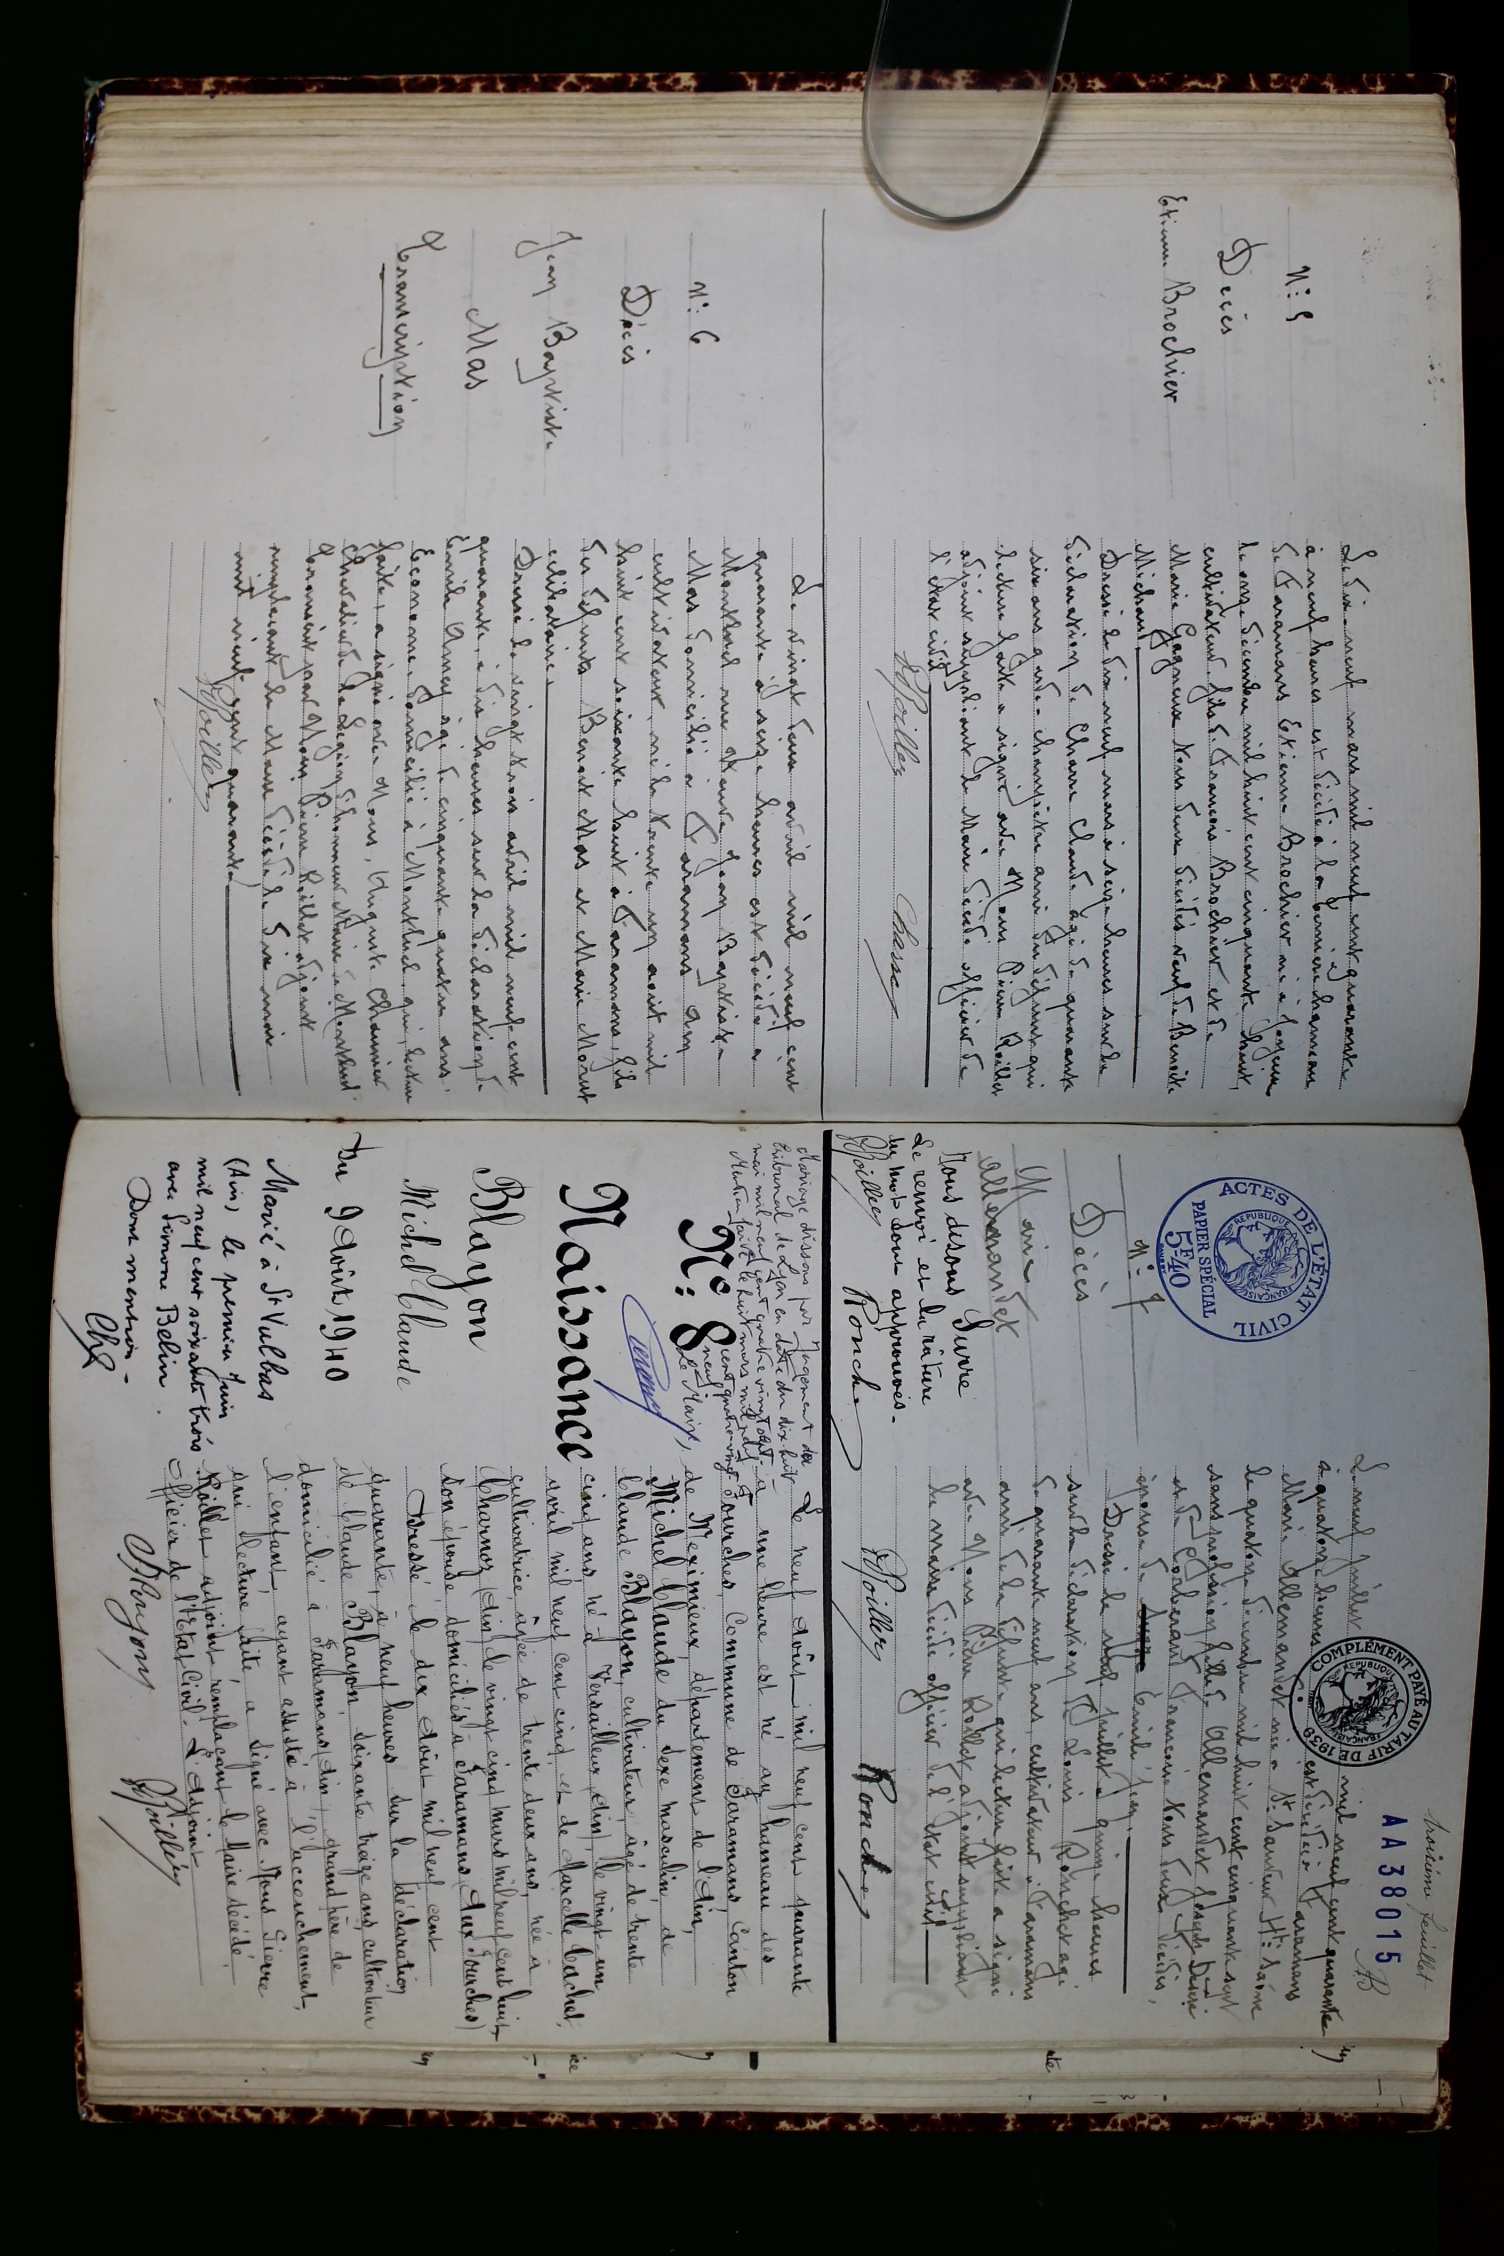 N° 5
Décès
Etienne Brochier
Le dix neuf mars mil neuf cent quarante
à neuf heures est décédé à la hameau
de Faramans Etienne Brochier né à Joyeux
le onze décembre mil huit cent cinquante huit,
cultivateur, fils de François Brochier et de
Marie Gagneux tous deux décédés veuf de Benoite
Michon
Dressé le dix neuf mars à seize heures sur la
déclaration de Charre Claude âgé de quarante
six ans garde-champêtre ami du défunt qui
lecture faite a signé avec Nous Pierre Roillet
adjoint suppléant le Maire décédé officier de
l'état civil
PRoillet
N° 6
Décès
Jean Baptiste
Mas
Transcription
Le vingt deux avril mil neuf cent
quarante à seize heures est décédé à
Montluel rue Jean Baptiste
Mas domicilié à Faramans Ain
cultivateur, né le trente un août mil
huit cent soixante huit à Faramans, fils
des défunts Benoit Mas et Marie Morut
célibataire.
Dressé le vingt trois avril mil neuf cent
quarante, à dix heures sur la déclaration de
Emile Amey âgé de cinquante quatre ans,
Econome domicilié à Montluel qui, lecture
faite, a signé avec Nous, Auguste
Chevalier de la Légion d'honneur Maire de Montluel
Transcrit par Nous Pierre Roillet adjoint
remplaçant le Maire décédé le dix mai
mil neuf cent quarante
PRoillet
troisième feuillet
AB
AA38015
ACTES DE L'ETAT CIVIL
REPUBLIQUE FRANÇAISE
PAPIER SPECIAL
5F40
COMPLÉMENT PAYÉ AU TARIF DE 1939
REPUBLIQUE FRANÇAISE
N° 7
Décès
Marie
Allemandet
Surre
Nous disons
Le renvoi et la rature
du mot sont approuvés.
PRoillet Ronch
Le neuf juillet mil neuf cent quarante
à quatorze heures est décédée à Faramans
Marie Allemandet née à St. Sauveur Hte Saône
le quatorze décembre mil huit cent cinquante sept
sans profession fille de Allemandet Joseph Désiré
et de Corberand Françoise tous deux décédés,
épouse de Emile
Dressé le neuf juillet à quinze heures
sur la déclaration de Louis Ronchet âgé
de quarante neuf ans, cultivateur à Faramans
ami de la défunte qui lecture faite a signé
avec Nous Pierre Roillet adjoint suppléant
le maire décédé officier de l'état civil
PRoillet Ronch
Mariage dissous par Jugement du
tribunal de Lyon en date du dix huit
mai mil neuf cent quatre vingt
Mention faite le huit mars mil neuf
cent quatre vingt
neuf
Le Maire,
N° 8
Naissance
Blayon
Michel Claude
Du 9 Août 1940
Marié à St Vulbas
(Ain) le premier Juin
mil neuf cent soixante trois
avec Simone Belin.
Dont mention -
Le neuf Août mil neuf cent quarante
à une heure est né au hameau des
Fourches, Commune de Faramans, Canton
de Meximieux, département de l'Ain,
Michel Claude du sexe masculin, de
Claude Blayon, cultivateur, âgé de trente
cinq ans, né à Versailleux (Ain), le vingt-un
avril mil neuf cent cinq, et de Marcelle Cachet,
cultivatrice, âgée de trente deux ans, née à
Charnoz (Ain) le vingt cinq mars mil neuf cent huit,
son épouse domiciliés à Faramans (Aux Fourches)
Dressé le dix Août mil neuf cent
quarante, à neuf heures sur la déclaration
de Claude Blayon, soixante treize ans, cultivateur
domicilié à Faramans (Ain), grand père de
l'enfant, ayant assisté à l'accouchement,
qui, lecture faite, a signé avec Nous Pierre
Roillet adjoint remplaçant le Maire décédé,
Officier de l'Etat Civil - L'adjoint
Blayon PRoillet